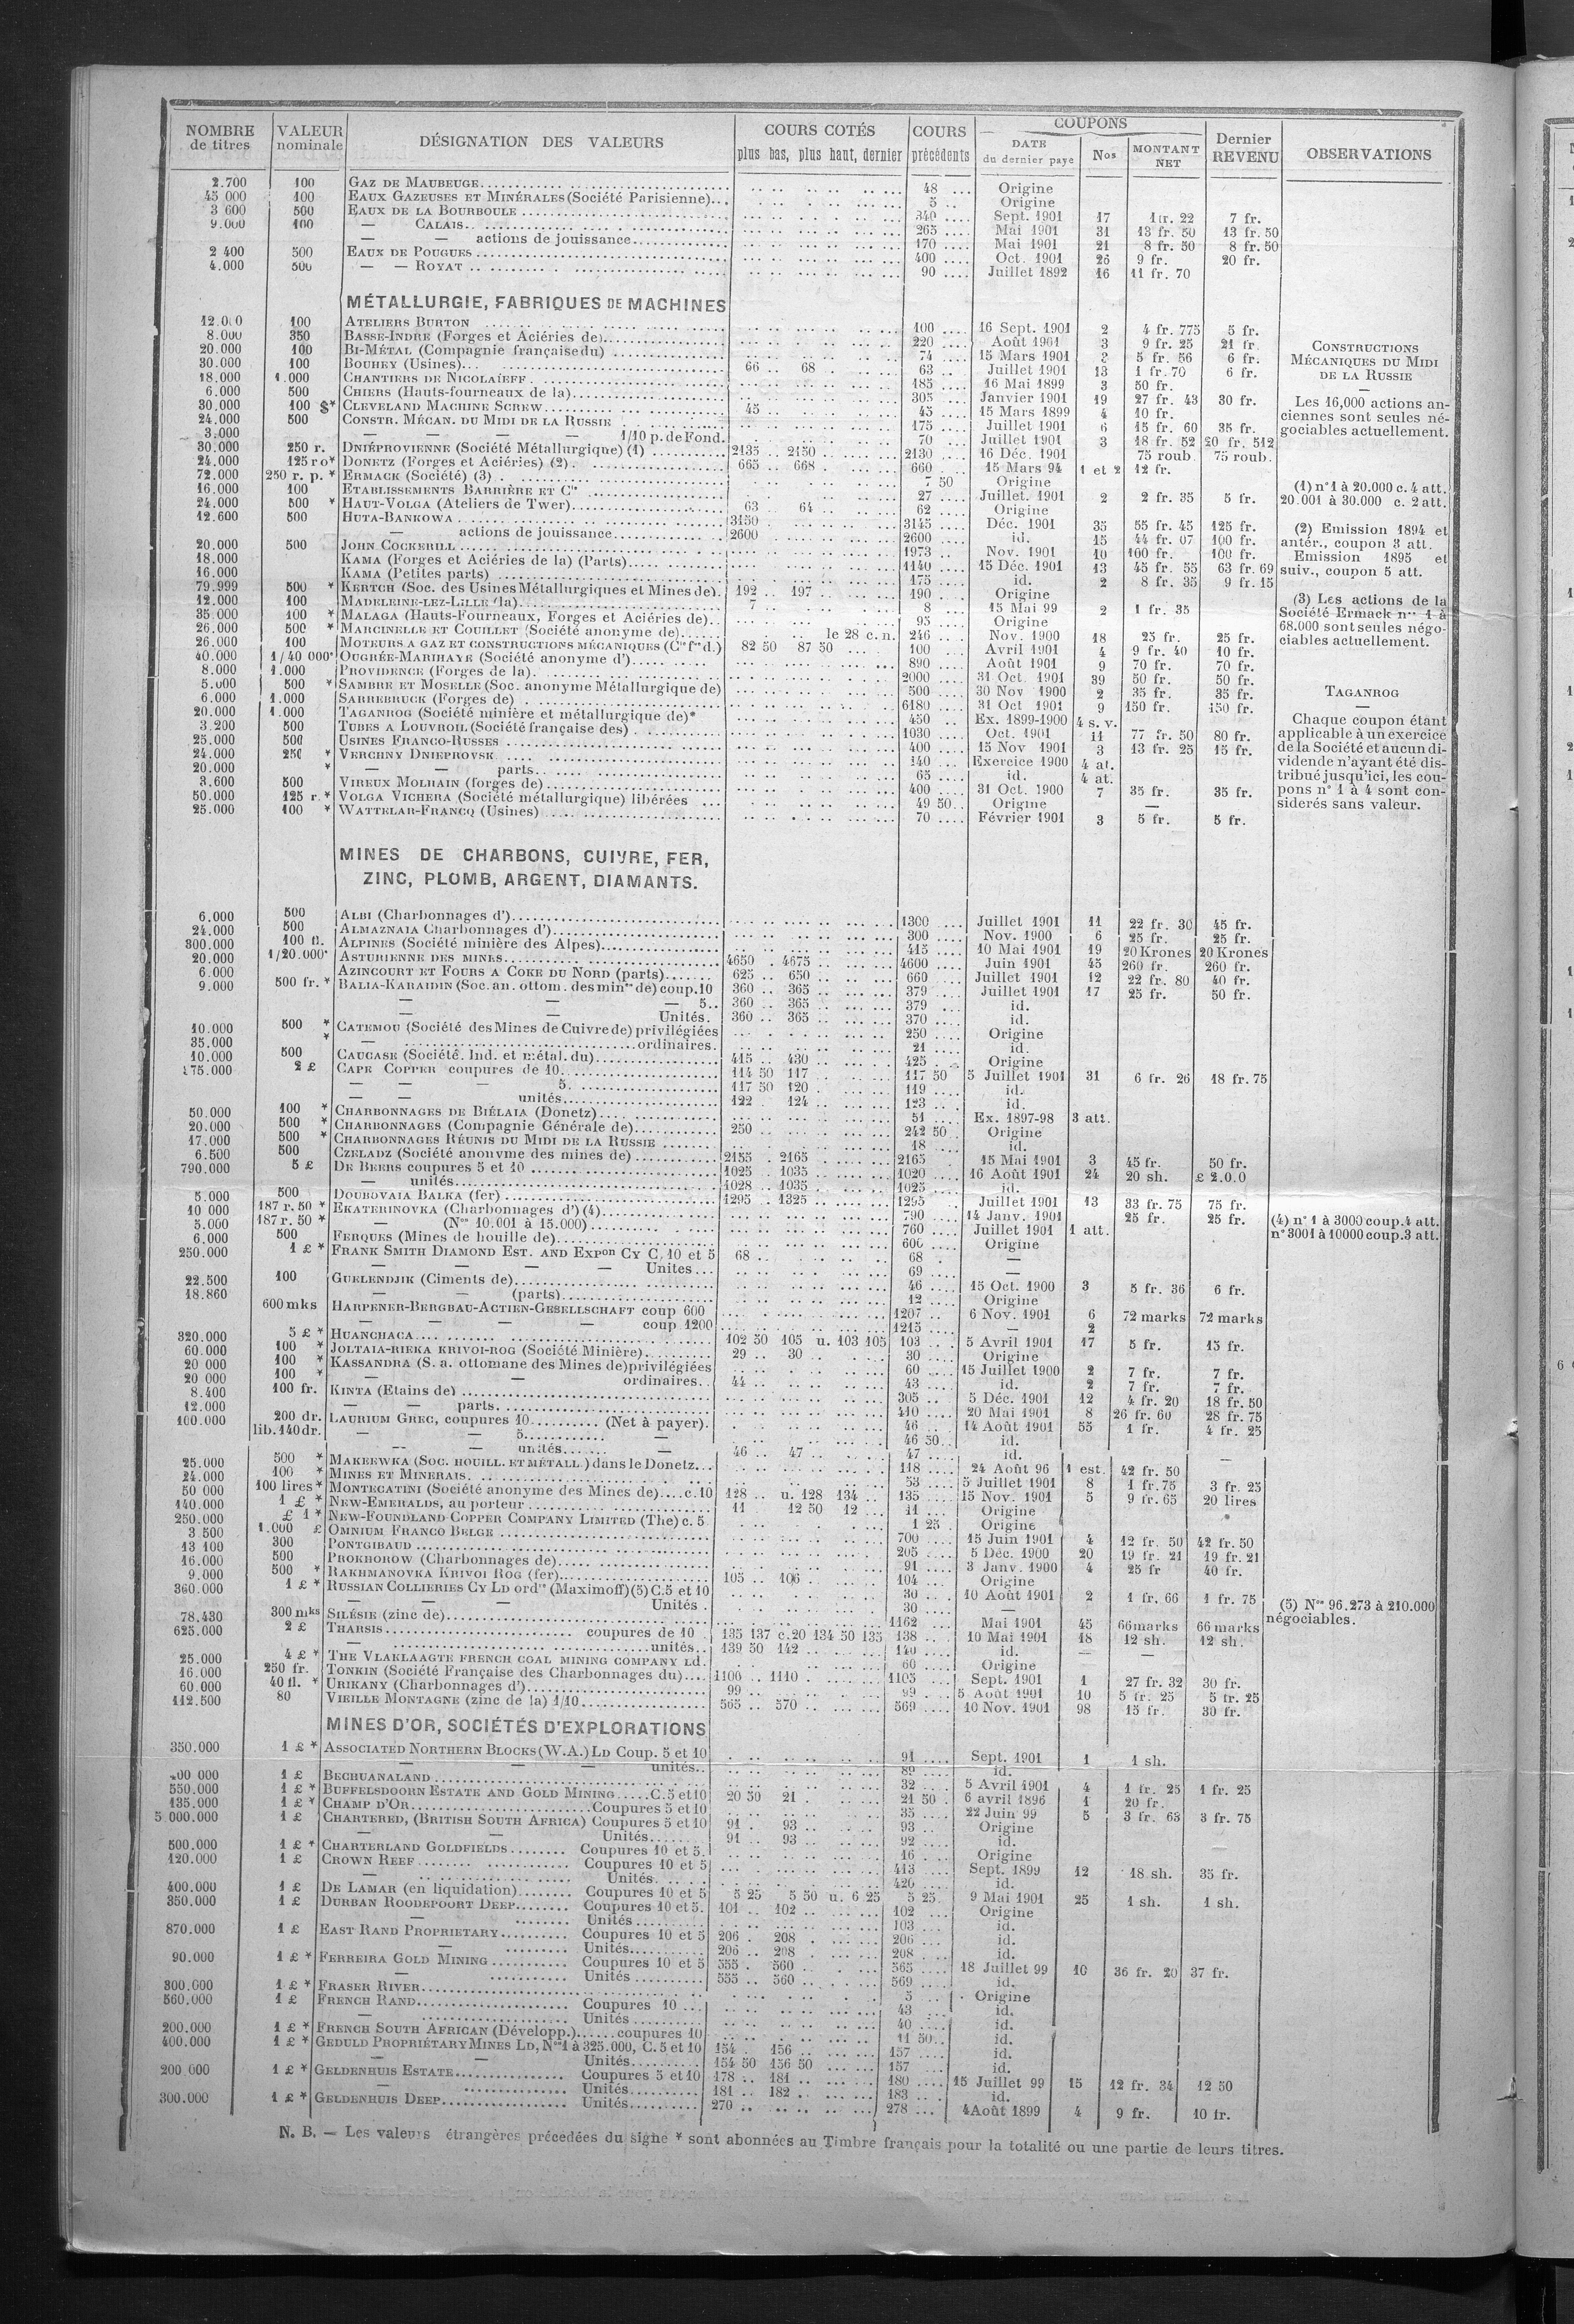 NOMBRE de titres | VALEUR nominale | DÉSIGNATION DES VALEURS | COURS COTÉS plus bas, plus haut, dernier | COURS précédents | COUPONS DATE du dernier paye | Nos | MONTANT NET | Dernier REVENU | OBSERVATIONS
2.700 100 GAZ DE MAUBEUGE 48 Origine
45 000 100 EAUX GAZEUSES ET MINÉRALES (Société Parisienne) 5 Origine
3 600 500 EAUX DE LA BOURBOULE 340 Sept. 1901 17 1 fr. 22 7 fr.
9.000 100 — CALAIS 265 Mai 1901 31 13 fr. 50 13 fr. 50
— — actions de jouissance 170 Mai 1901 21 8 fr. 50 8 fr. 50
2 400 500 EAUX DE POUGUES 400 Oct. 1901 25 9 fr. 20 fr.
4.000 500 — — ROYAT 90 Juillet 1892 16 11 fr. 70
MÉTALLURGIE, FABRIQUES DE MACHINES
12.000 100 ATELIERS BURTON 100 16 Sept. 1901 2 4 fr. 775 5 fr.
8.000 350 BASSE-INDRE (Forges et Aciéries de) 220 Août 1901 3 9 fr. 25 21 fr.
20.000 100 BI-MÉTAL (Compagnie française du) 74 15 Mars 1901 3 5 fr. 56 6 fr.
30.000 100 BOUHEY (Usines) 66 68 63 Juillet 1901 13 1 fr. 70 6 fr.
18.000 1.000 CHANTIERS DE NICOLAÏEFF 185 16 Mai 1899 3 50 fr.
6.000 500 CHIERS (Hauts-fourneaux de la) 305 Janvier 1901 19 27 fr. 43 30 fr.
30.000 100 $* CLEVELAND MACHINE SCREW 45 45 15 Mars 1899 4 10 fr.
24.000 500 CONSTR. MÉCAN. DU MIDI DE LA RUSSIE 175 Juillet 1901 6 15 fr. 60 35 fr.
3.000 — — — — 1/10 p. de Fond. 70 Juillet 1901 3 18 fr. 52 20 fr. 512
30.000 250 r. DNIÉPROVIENNE (Société Métallurgique) (1) 2135 2150 2130 16 Déc. 1901 75 roub. 75 roub.
24.000 125 ro* DONETZ (Forges et Aciéries) (2) 665 668 660 15 Mars 94 1 et 2 12 fr.
72.000 250 r. p. * ERMACK (Société) (3) 7 50 Origine
16.000 100 ETABLISSEMENTS BARRIÈRE ET Cie 27 Juillet. 1901 2 2 fr. 35 5 fr.
24.000 500 * HAUT-VOLGA (Ateliers de Twer) 63 64 62 Origine
12.600 500 HUTA-BANKOWA 3150 3145 Déc. 1901 35 55 fr. 45 125 fr.
— actions de jouissance 2600 2600 id. 15 44 fr. 07 100 fr.
20.000 500 JOHN COCKERILL 1973 Nov. 1901 10 100 fr. 100 fr.
18.000 KAMA (Forges et Aciéries de la) (Parts) 1140 15 Déc. 1901 13 45 fr. 55 63 fr. 69
16.000 KAMA (Petites parts) 175 id. 2 8 fr. 35 9 fr. 15
79.999 500 * KERTCH (Soc. des Usines Métallurgiques et Mines de) 192 197 190 Origine
12.000 100 MADELEINE-LEZ-LILLE (la) 7 8 15 Mai 99 2 1 fr. 35
35.000 100 * MALAGA (Hauts-Fourneaux, Forges et Aciéries de) 95 Origine
26.000 500 * MARCINELLE ET COUILLET (Société anonyme de) le 28 c. n. 246 Nov. 1900 18 25 fr. 25 fr.
26.000 100 MOTEURS A GAZ ET CONSTRUCTIONS MÉCANIQUES (Cie fse d.) 82 50 87 50 100 Avril 1901 4 9 fr. 40 10 fr.
40.000 1/40 000e OUGRÉE-MARIHAYE (Société anonyme d') 890 Août 1901 9 70 fr. 70 fr.
8.000 1.000 PROVIDENCE (Forges de la) 2000 31 Oct. 1901 39 50 fr. 50 fr.
5.000 500 * SAMBRE ET MOSELLE (Soc. anonyme Métallurgique de) 500 30 Nov 1900 2 35 fr. 35 fr.
6.000 1.000 SARREBRUCK (Forges de) 6180 31 Oct 1901 9 150 fr. 150 fr.
20.000 1.000 TAGANROG (Société minière et métallurgique de)* 450 Ex. 1899-1900 4 s. v.
3 200 500 TUBES A LOUVROIL (Société française des) 1030 Oct. 1901 11 77 fr. 50 80 fr.
25.000 500 USINES FRANCO-RUSSES 400 15 Nov 1901 3 13 fr. 25 15 fr.
24.000 250 * VERCHNY DNIEPROVSK 140 Exercice 1900 4 at.
20.000 * — — parts 65 id. 4 at.
3.600 500 VIREUX MOLHAIN (forges de) 400 31 Oct. 1900 7 35 fr. 35 fr.
50.000 125 r. * VOLGA VICHERA (Société métallurgique) libérées 49 50 Origine —
25.000 100 * WATTELAR-FRANCQ (Usines) 70 Février 1901 3 5 fr. 5 fr.
CONSTRUCTIONS
MÉCANIQUES DU MIDI
DE LA RUSSIE
—
Les 16,000 actions an-
ciennes sont seules né-
gociables actuellement.
(1) n° 1 à 20.000 c. 4 att.
20.001 à 30.000 c. 2 att.
(2) Emission 1894 et
antér., coupon 3 att.
Emission 1895 et
suiv., coupon 5 att.
(3) Les actions de la
Société Ermack nos 1 à
68.000 sont seules négo-
ciables actuellement.
TAGANROG
—
Chaque coupon étant
applicable à un exercice
de la Société et aucun di-
vidende n'ayant été dis-
tribué jusqu'ici, les cou-
pons n° 1 à 4 sont con-
siderés sans valeur.
MINES DE CHARBONS, CUIVRE, FER,
ZINC, PLOMB, ARGENT, DIAMANTS.
6.000 500 ALBI (Charbonnages d') 1300 Juillet 1901 11 22 fr. 30 45 fr.
24.000 500 ALMAZNAIA Charbonnages d') 300 Nov. 1900 6 25 fr. 25 fr.
300.000 100 fl. ALPINES (Société minière des Alpes) 415 10 Mai 1901 19 20 Krones 20 Krones
20.000 1/20.000e ASTURIENNE DES MINES 4650 4675 4600 Juin 1901 45 260 fr. 260 fr.
6.000 AZINCOURT ET FOURS A COKE DU NORD (parts) 625 650 660 Juillet 1901 12 22 fr. 80 40 fr.
9.000 500 fr. * BALIA-KARAIDIN (Soc. an. ottom. des mines de) coup. 10 360 365 379 Juillet 1901 17 25 fr. 50 fr.
— — — 5 360 365 379 id.
— — Unités. 360 365 370 id.
10.000 500 * CATEMOU (Société des Mines de Cuivre de) privilégiées 250 Origine
35.000 * — ordinaires. 21 id.
10.000 500 CAUCASE (Société. Ind. et métal. du) 415 430 425 Origine
175.000 2 £ CAPE COPPER coupures de 10 114 50 117 117 50 5 Juillet 1901 31 6 fr. 26 18 fr. 75
— — — 5 117 50 120 119 id.
— — unités 122 124 123 id.
50.000 100 * CHARBONNAGES DE BIÉLAIA (Donetz) 51 Ex. 1897-98 3 att.
20.000 500 * CHARBONNAGES (Compagnie Générale de) 250 242 50 Origine
17.000 500 * CHARBONNAGES RÉUNIS DU MIDI DE LA RUSSIE 18 id.
6.500 500 CZELADZ (Société anonyme des mines de) 2155 2165 2165 15 Mai 1901 3 45 fr. 50 fr.
790.000 5 £ DE BEERS coupures 5 et 10 1025 1035 1020 16 Août 1901 24 20 sh. £ 2.0.0
— unités 1028 1035 1025 id.
5.000 500 DOUBOVAIA BALKA (fer) 1295 1325 1295 Juillet 1901 13 33 fr. 75 75 fr.
10 000 187 r. 50 * EKATERINOVKA (Charbonnages d') (4) 790 14 Janv. 1901 25 fr. 25 fr.
5.000 187 r. 50 * — (Nos 10.001 à 15.000) 760 Juillet 1901 1 att.
6.000 500 FERQUES (Mines de houille de) 600 Origine
250.000 1 £ * FRANK SMITH DIAMOND EST. AND EXPon CY C. 10 et 5 68 68 —
— — — — Unites 69 —
22.500 100 GUELENDJIK (Ciments de) 46 15 Oct. 1900 3 5 fr. 36 6 fr.
18.860 — — (parts) 12 Origine
600 mks HARPENER-BERGBAU-ACTIEN-GESELLSCHAFT coup 600 1207 6 Nov. 1901 6 72 marks 72 marks
— — — — coup 1200 1215 — 2
320.000 5 £ * HUANCHACA 102 50 105 u. 103 105 103 5 Avril 1901 17 5 fr. 15 fr.
60.000 100 * JOLTAIA-RIEKA KRIVOI-ROG (Société Minière) 29 30 30 Origine
20 000 100 * KASSANDRA (S. a. ottomane des Mines de) privilégiées 60 15 Juillet 1900 2 7 fr. 7 fr.
20 000 100 * — — ordinaires 44 43 id. 2 7 fr. 7 fr.
8.400 100 fr. KINTA (Etains de) 305 5 Déc. 1901 12 4 fr. 20 18 fr. 50
12.000 — — parts 410 20 Mai 1901 8 26 fr. 60 28 fr. 75
100.000 200 dr. LAURIUM GREC, coupures 10 (Net à payer). 46 14 Août 1901 55 1 fr. 4 fr. 25
lib. 140 dr. — — 5 — 46 50 id.
— — unités — 46 47 47 id. —
25.000 500 * MAKEEWKA (SOC. HOUILL. ET MÉTALL.) dans le Donetz 118 24 Août 96 1 est. 42 fr. 50
24.000 100 * MINES ET MINERAIS 53 5 Juillet 1901 8 1 fr. 75 3 fr. 25
50 000 100 lires * MONTECATINI (Société anonyme des Mines de) c. 10 128 u. 128 134 135 15 Nov. 1901 5 9 fr. 65 20 lires
140.000 1 £ * NEW-EMERALDS, au porteur 11 12 50 12 11 Origine
250.000 £ 1 * NEW-FOUNDLAND COPPER COMPANY LIMITED (The) c. 5 1 25 Origine
3 500 1.000 £ OMNIUM FRANCO BELGE 700 15 Juin 1901 4 12 fr. 50 42 fr. 50
13 100 300 PONTGIBAUD 205 5 Déc. 1900 20 19 fr. 21 19 fr. 21
16.000 500 PROKHOROW (Charbonnages de) 91 3 Janv. 1900 4 25 fr 40 fr.
9.000 500 * RAKHMANOVKA KRIVOI ROG (fer) 105 106 104 Origine
360.000 1 £ * RUSSIAN COLLIERIES CY LD ordres (Maximoff) (5) C. 5 et 10 30 10 Août 1901 2 1 fr. 66 1 fr. 75
— — — Unités 30 —
78.430 300 mks SILÉSIE (zinc de) 1162 Mai 1901 45 66 marks 66 marks
625.000 2 £ THARSIS coupures de 10 135 137 c. 20 134 50 135 138 10 Mai 1901 18 12 sh. 12 sh.
— unités 139 50 142 140 id. — —
25.000 4 £ * THE VLAKLAAGTE FRENCH COAL MINING COMPANY Ld. 60 Origine
16.000 250 fr. TONKIN (Société Française des Charbonnages du) 1100 1110 1105 Sept. 1901 1 27 fr. 32 30 fr.
60.000 40 fl. * URIKANY (Charbonnages d') 99 99 5 Août 1901 10 5 fr. 25 5 fr. 25
112.500 80 VIEILLE MONTAGNE (zinc de la) 1/10 565 570 569 10 Nov. 1901 98 15 fr. 30 fr.
(4) n° 1 à 3000 coup. 4 att.
n° 3001 à 10000 coup. 3 att.
(5) Nos 96.273 à 210.000
négociables.
MINES D'OR, SOCIÉTÉS D'EXPLORATIONS
350.000 1 £ * ASSOCIATED NORTHERN BLOCKS (W.A.) LD Coup. 5 et 10 91 Sept. 1901 1 1 sh.
— — unités 89 id.
00 000 1 £ BECHUANALAND 32 5 Avril 1901 4 1 fr. 25 1 fr. 25
550.000 1 £ * BUFFELSDOORN ESTATE AND GOLD MINING C. 5 et 10 20 50 21 21 50 6 avril 1896 1 20 fr.
135.000 1 £ * CHAMP D'OR Coupures 5 et 10 35 22 Juin 99 5 3 fr. 63 3 fr. 75
5 000.000 1 £ CHARTERED, (BRITISH SOUTH AFRICA) Coupures 5 et 10 91 93 93 Origine
— — Unités 91 93 92 id. —
500.000 1 £ * CHARTERLAND GOLDFIELDS Coupures 10 et 5. 16 Origine
120.000 1 £ CROWN REEF Coupures 10 et 5 413 Sept. 1899 12 18 sh. 35 fr.
— Unités 420 id.
400.000 1 £ DE LAMAR (en liquidation) Coupures 10 et 5 5 25 5 50 u. 6 25 5 25 9 Mai 1901 25 1 sh. 1 sh.
350.000 1 £ DURBAN ROODEPOORT DEEP Coupures 10 et 5. 101 102 102 Origine
— Unités 103 id.
870.000 1 £ EAST RAND PROPRIETARY Coupures 10 et 5 206 208 206 id.
— Unités 206 208 208 id.
90.000 1 £ * FERREIRA GOLD MINING Coupures 10 et 5 555 560 565 18 Juillet 99 10 36 fr. 20 37 fr.
— Unités 555 560 569 id.
300.000 1 £ * FRASER RIVER 5 Origine
560.000 1 £ FRENCH RAND Coupures 10 43 id.
— Unités 40 id.
200.000 1 £ * FRENCH SOUTH AFRICAN (Développ.) coupures 10 11 50 id.
400.000 1 £ * GEDULD PROPRIÉTARY MINES LD, Nos 1 à 325.000, C. 5 et 10 154 156 157 id.
— — Unités 154 50 156 50 157 id.
200 000 1 £ * GELDENHUIS ESTATE Coupures 5 et 10 178 181 180 15 Juillet 99 15 12 fr. 34 12 50
— Unités 181 182 183 id.
300.000 1 £ * GELDENHUIS DEEP Unités 270 278 4 Août 1899 4 9 fr. 10 fr.
N. B. — Les valeurs étrangères précédées du signe * sont abonnées au Timbre français pour la totalité ou une partie de leurs titres.